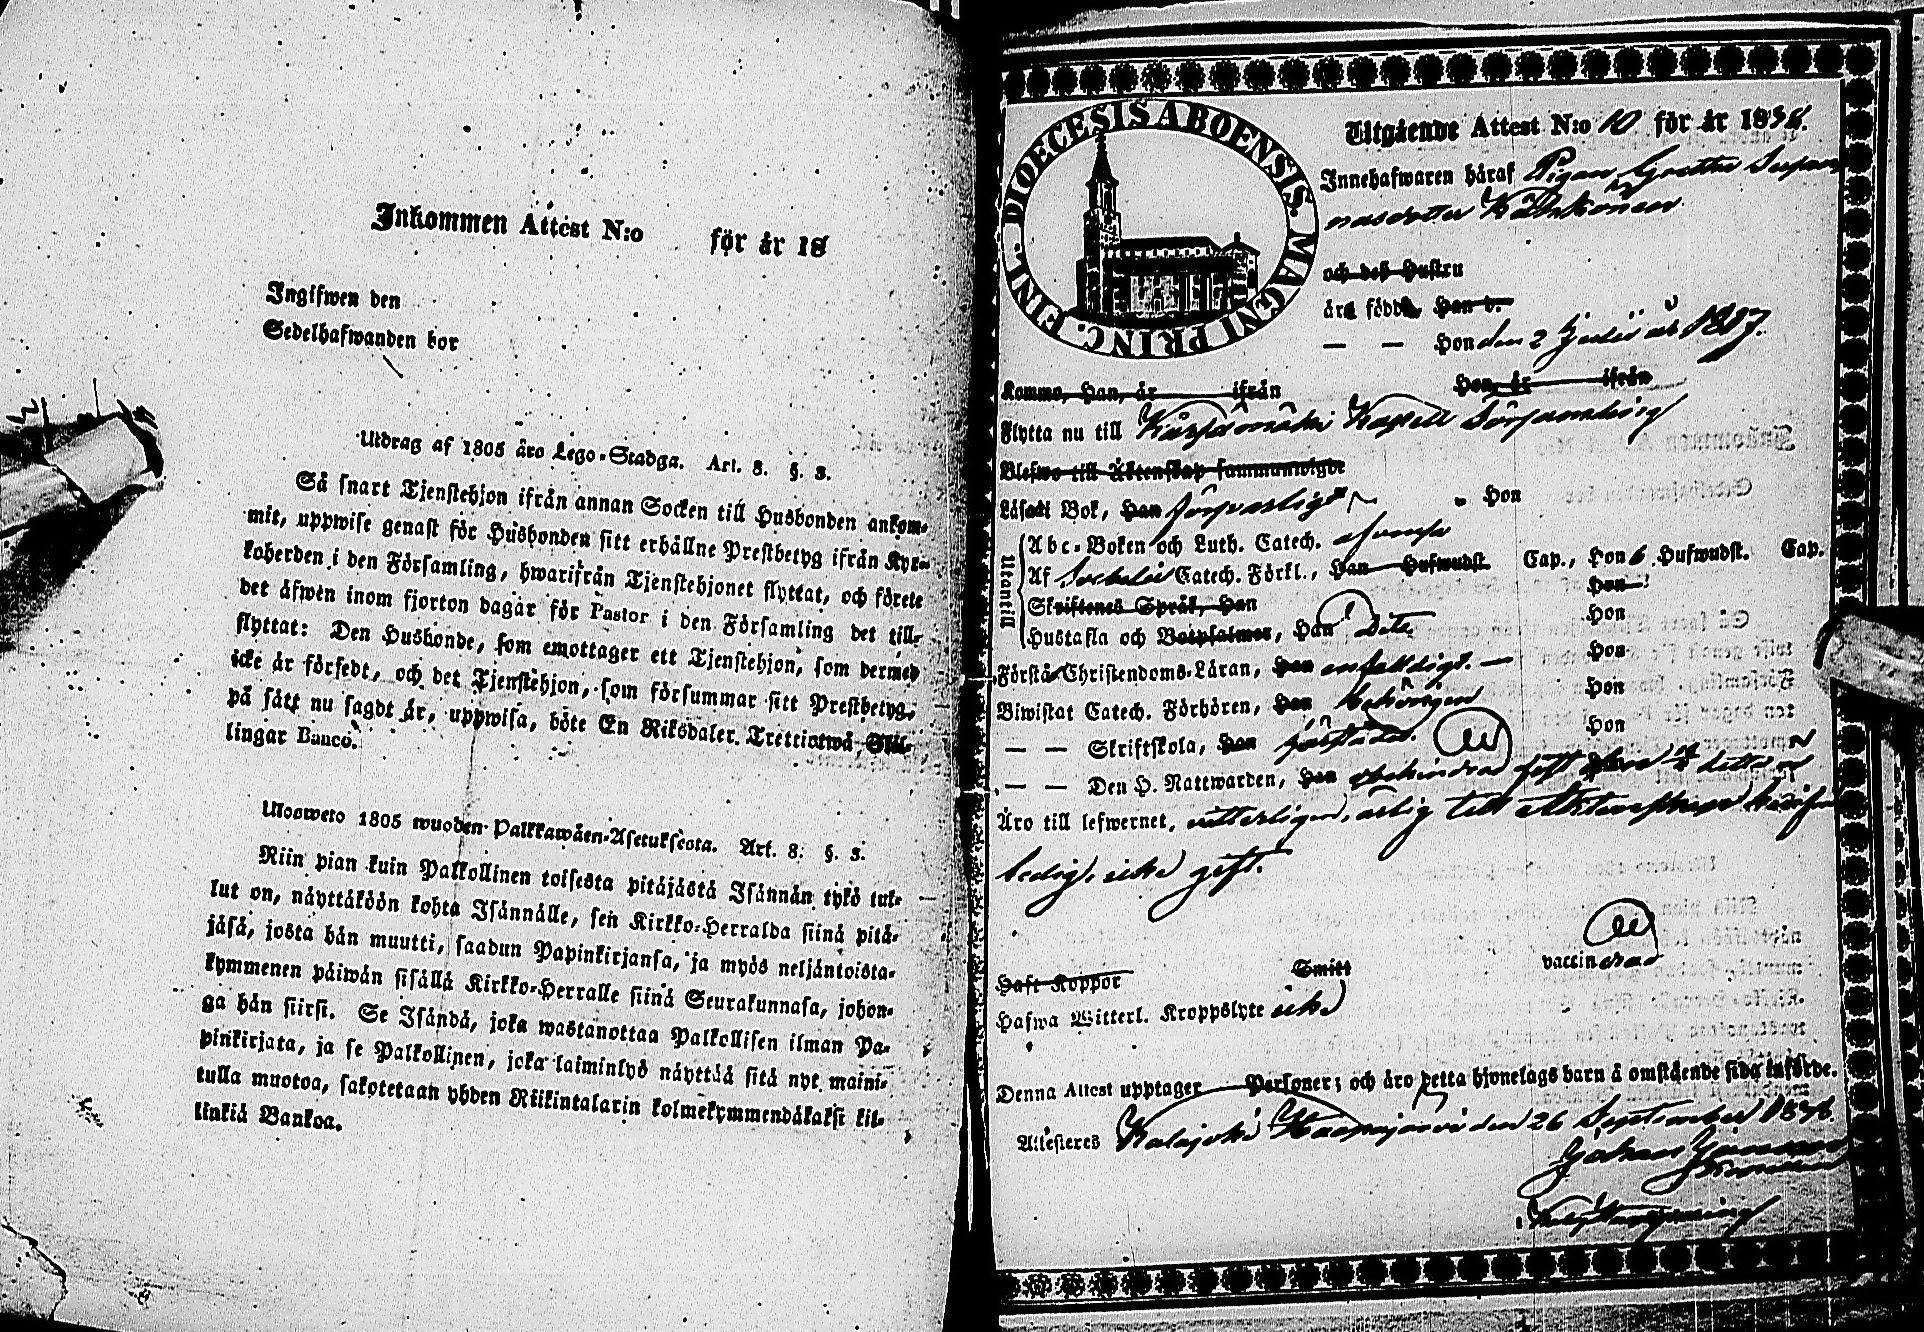 Inkommen Attest N:o för år 18
Ingifwen den
Sedelhafwanden bor
Utdrag af 1805 års Lego-Stadga. Art. 8. §. 3.
Så snart Tjenstehjon ifrån annan Socken till Husbonden ankom-
mit, uppwise genast för Husbonden sitt erhållne Prestbetyg ifrån Kyr-
koherden i den Församling, hwarifrån Tjenstehjonet flyttat, och förete
det äfwen inom fjorton dagar för Pastor i den Församling det till-
flyttat: Den Husbonde, som emottager ett Tjenstehjon, som dermed
icke är försedt, och det Tjenstehjon, som försummar sitt Prestbetyg,
på sätt nu sagdt är, uppwisa, böte En Riksdaler Trettiotwå Skil-
lingar Banco.
Ulosweto 1805 wuoden Palkkawäen-Asetuksesta. Art. 8. §. 3.
Niin pian kuin Palkollinen toisesta pitäjästä Isännän tykö tul-
lut on, näyttäköön kohta Isännälle, sen Kirkko-Herralda siinä pitä-
jäsä, josta hän muutti, saadun Papinkirjansa, ja myös neljäntoista-
kymmenen päiwän sisällä Kirkko-Herralle siinä Seurakunnasa, johon-
ga hän siirsi. Se Isändä, joka wastanottaa Palkollisen ilman Pa-
pinkirjata, ja se Palkollinen, joka laiminlyö näyttää sitä nyt maini-
tulla muotoa, sakotetaan yhden Riikintalarin kolmekymmendäkaksi kil-
linkiä Bankoa.
DIOECESIS ABOENSIS. MAGNI PRINC. FINL.
Utgående Attest N:o 10 för år 1838.
Innehafwaren häraf Pigan Greta
och deß Hustru
äro födde, Han d.
— — Hon den 2 Julii år 1817.
Kommo, Han, år ifrån Hon år ifrån
Flytta nu till Kärsämäki Kapell Församling
Blefwo till Äktenskap sammanwigde
Läsa i Bok, Han försvarligt Hon
Utantill
Abc-Boken och Luth. Catech.
Af Catech. Förkl., Han Hufwudst. Cap., Hon 6 Hufwudst. Cap.
Skriftenes Språk, Han Hon
Hustafla och Botpsalmer, Han Dito Hon
Förstå Christendoms-Läran, Han enfaldigt. — Hon
Biwistat Catech. Förhören, Han behörigen Hon
— — Skriftskola, Han Hon
— — Den H. Nattwarden, Han obehindrad
Äro till lefwernet, ärlig till Äktenskap
ledig, icke gift.
Haft Koppor Smitt vaccinerad
Hafwa Witterl. Kroppslyte icke
Denna Attest upptager Personer; och äro detta hjonelags barn å omstående sida införde.
Attesteres Kalajoki Haapajärvi den 26 September 1838.
Johan